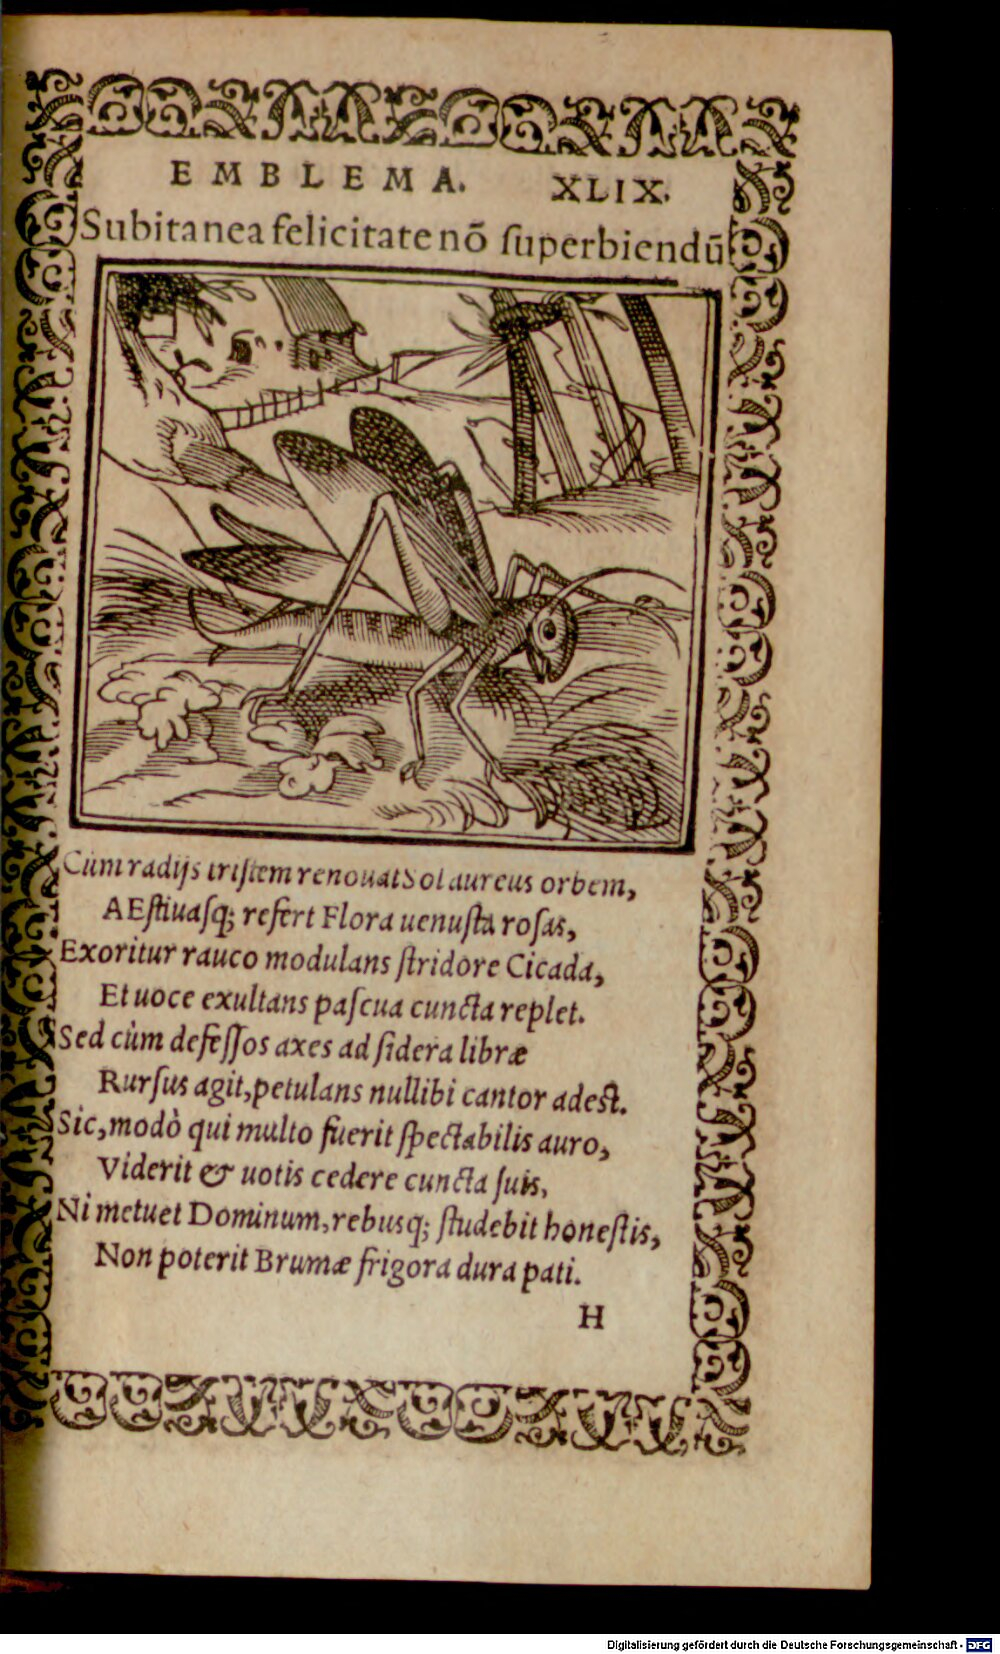 EMBLEMA. XLIX.
Subitanea felicitate nō ſuperbiendū
Cùm radijs triſtem renouat Sol aureus orbem,
AEſtiuaſq; refert Flora uenuſta roſas,
Exoritur rauco modulans ſtridore Cicada,
Et uoce exultans paſcua cuncta replet.
Sed cùm defeſſos axes ad ſidera libræ
Rurſus agit, petulans nullibi cantor adest.
Sic, modò qui multo fuerit ſpectabilis auro,
Viderit & uotis cedere cuncta ſuis,
Ni metuet Dominum, rebusq; ſtudebit honeſtis,
Non poterit Brumæ frigora dura pati.
H
Digitalisierung gefördert durch die Deutsche Forschungsgemeinschaft - DFG